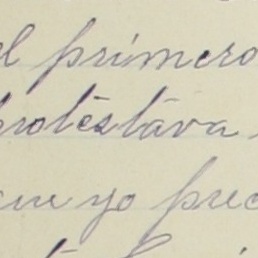 el primero
protestava
yo prec